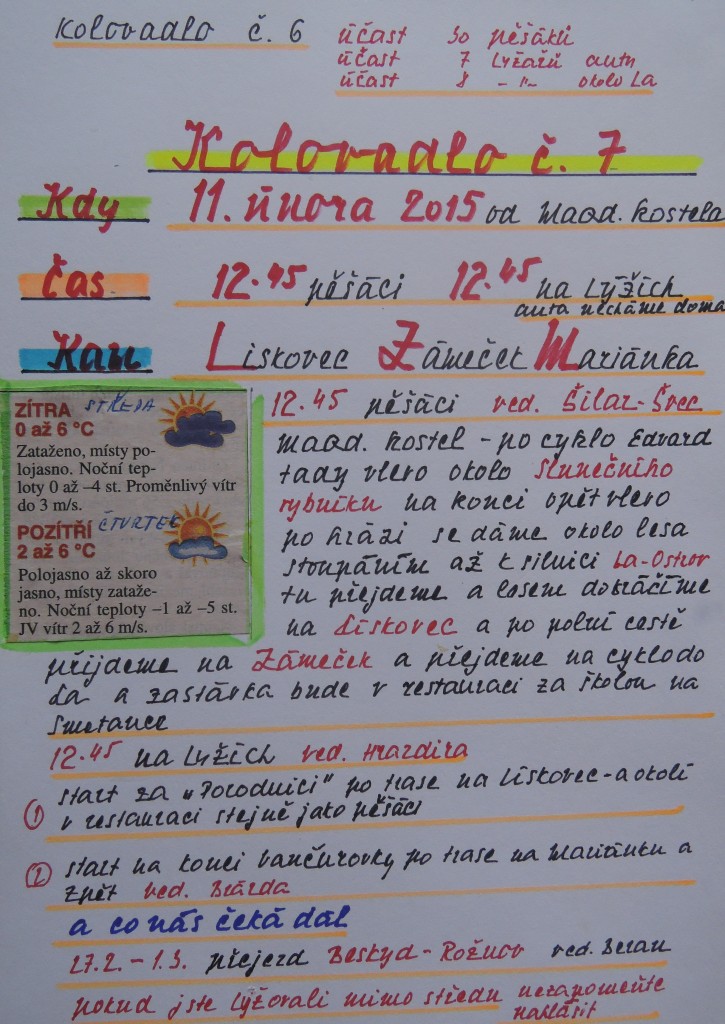 Kolovadlo č. 6
účast 30 pěšáků
účast 7 Lyžařů autn
účast 8 -"- okolo La
Kolovadlo č. 7
Kdy 11. února 2015 od Maad. kostela
Čas 12.45 pěšáci 12.45 na Lyžích
auta necháme doma
Kam Liskovec Zámeček Mariánka
ZÍTRA STŘEDA
0 až 6 °C
Zataženo, místy po-
lojasno. Noční tep-
loty 0 až –4 st. Proměnlivý vítr
do 3 m/s.
POZÍTŘÍ ČTVRTEK
2 až 6 °C
Polojasno až skoro
jasno, místy zataže-
no. Noční teploty –1 až –5 st.
JV vítr 2 až 6 m/s.
12.45 pěšáci ved. Šilar-Švec
Maad. kostel - po cyklo Edvard
tady vlevo okolo Slunečního
rybníku na konci opět vlevo
po hrázi se dáme okolo lesa
stoupáním až k silnici La-Ostrov
tu přejdeme a lesem dokráčíme
na Liskovec a po polní cestě
přijdeme na Zámeček a přejdeme na cyklo do
La a zastávka bude v restauraci za školou na
Smetance
12.45 na Lyžích ved. Hrazdira
① start za „Porodnicí" po trase na Liskovec - a okolí
v restauraci stejně jako pěšáci
② start na konci Vančurovky po trase na Mariánku a
zpět ved. Brázda
a co nás čeká dál
27.2. – 1.3. přejezd Beskyd - Rožnov ved. Beran
pokud jste Lyžovali mimo středu nezapomeňte
nahlásit